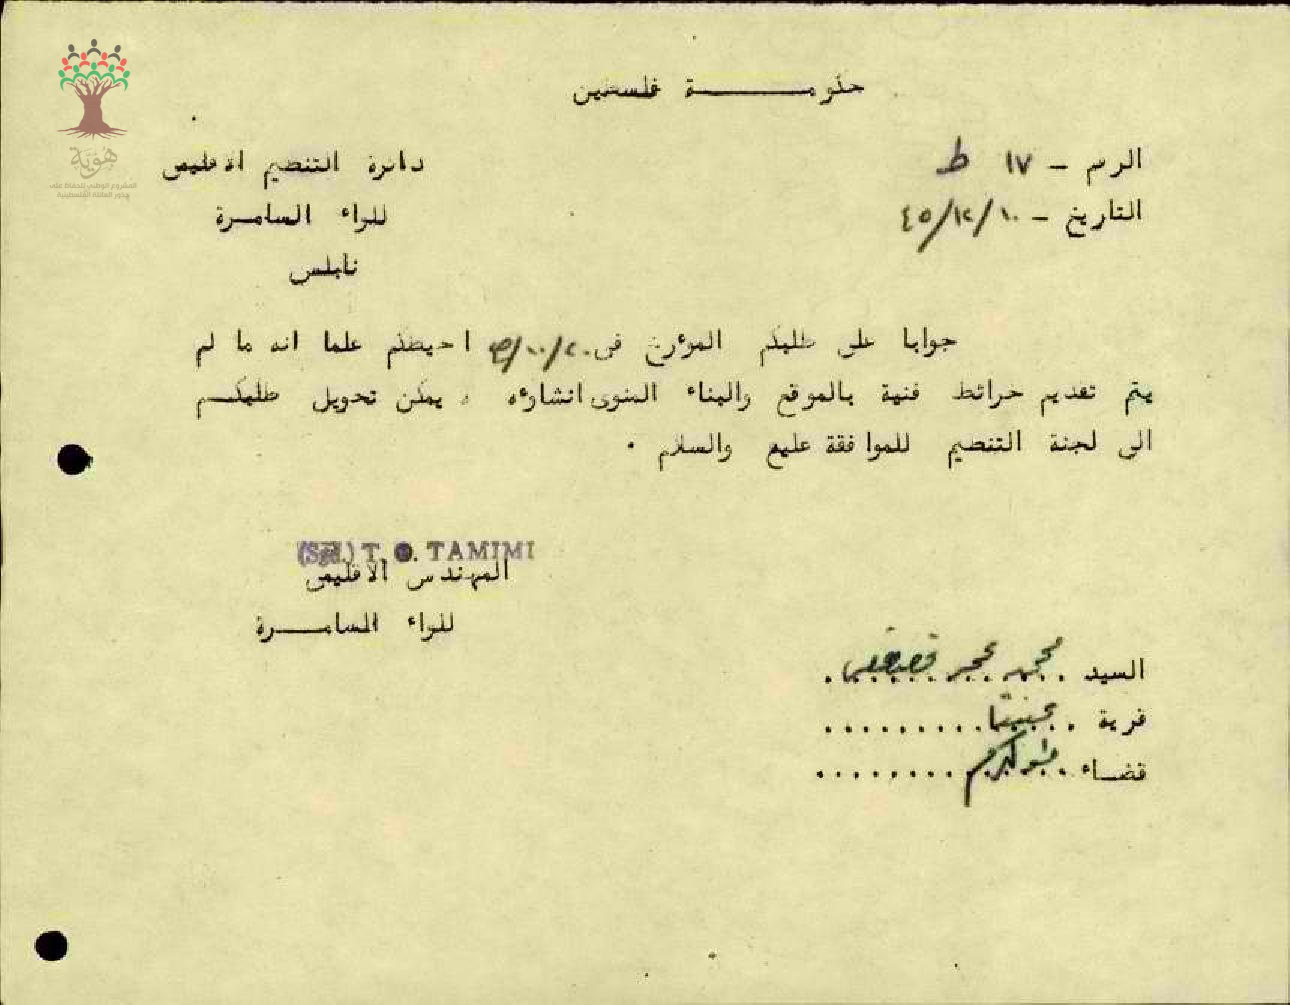 هوية
المشروع الوطني للحفاظ على
جذور العائلة الفلسطينية
حكومـــــــة فلسطين
الرقم - ١٧ ط
دائرة التنظيم الاقليمي
التاريخ - ٤٥/١٢/١٠
للواء السامـرة
نابلس
جوابا على طلبكم المؤرخ في ١٠/٢٠ احيطكم علما انه ما لم
يتم تقديم خرائط فنية بالموقع والبناء المنوى انشاؤه ، يمكن تحويل طلبكـم
الى لجنة التنظيم للموافقة عليه والسلام .
(Sgd.) T. TAMIMI
المهندس الاقليمي
للواء السامـــرة
السيد . محمد
قرية . عنبتا
قضـاء . طولكرم